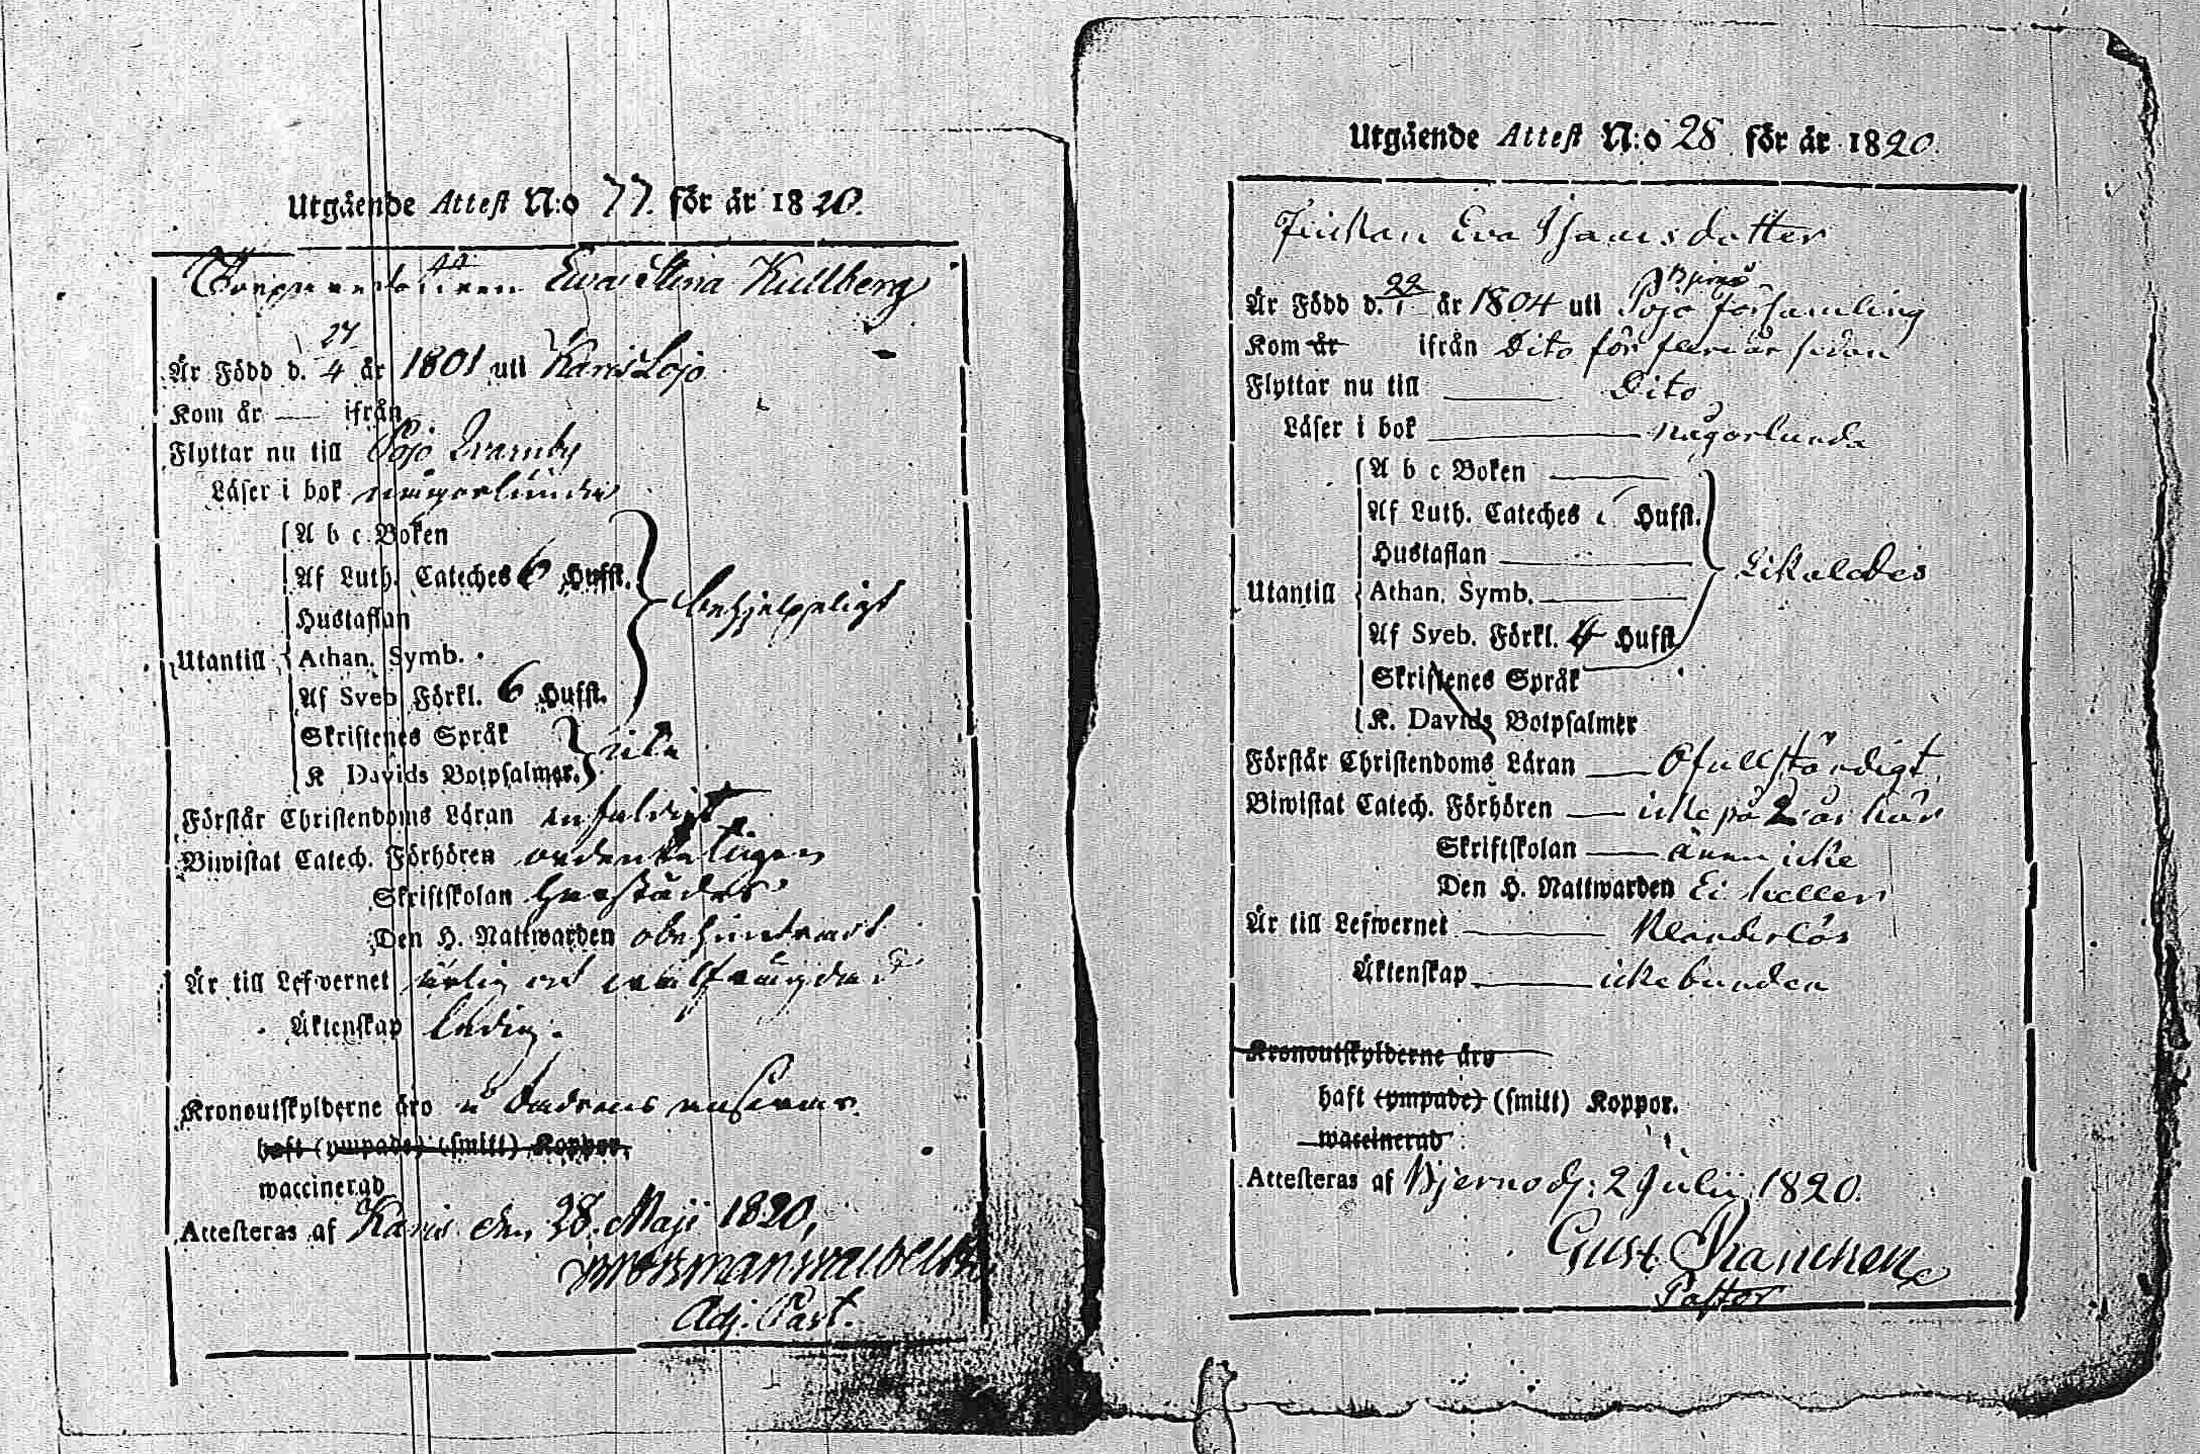 Utgående Attest N:o 77. för år 1820.
Eva Stina Kullberg
Är Född d. 27/4 år 1801 uti Karis Lojo
Kom år — ifrån
Flyttar nu till Pojo Brarnby
Läser i bok någorlunda
A b c Boken
Af Luth. Cateches 6 Hufst.
Hustaflan
Utantill Athan. Symb.
Af Sveb. Förkl. 6 Hufst.
behjelpeligt
Skriftenes Språk
K. Davids Botpsalmer. icke
Förstår Christendoms Läran enfaldigt
Biwistat Catech. Förhören ordenteligen
Skriftskolan härstädes
Den H. Nattwarden obehindrat
Är till Lefwernet ärlig och välfrägdad
Äktenskap ledig.
Kronoutskylderne äro
haft (ympade) (smitt) Koppor.
waccinerad
Attesteras af Karis den 28. Maji 1820,
Adj. Past.
Utgående Attest N:o 28 för år 1820.
Pickan Eva Hansdotter
Är Född d. 22/1 år 1804 uti Pojo Bjerno församling
Kom år ifrån Dito för flere år sedan
Flyttar nu till — Dito
Läser i bok — någorlunda
A b c Boken —
Af Luth. Cateches Hufst.
Hustaflan —
Likaledes
Utantill Athan. Symb. —
Af Sveb. Förkl. 4 Hufst.
Skriftenes Språk
K. Davids Botpsalmer
Förstår Christendoms Läran — Ofullständigt
Biwistat Catech. Förhören — icke på 2 år här
Skriftskolan — även icke
Den H. Nattwarden Ei heller
Är till Lefwernet — Klanderlös
Äktenskap — icke bunden
Kronoutskylderne äro
haft (ympade) (smitt) Koppor.
waccinerad
Attesteras af Bjerno d: 2 Julii 1820.
Gust.
Pastor